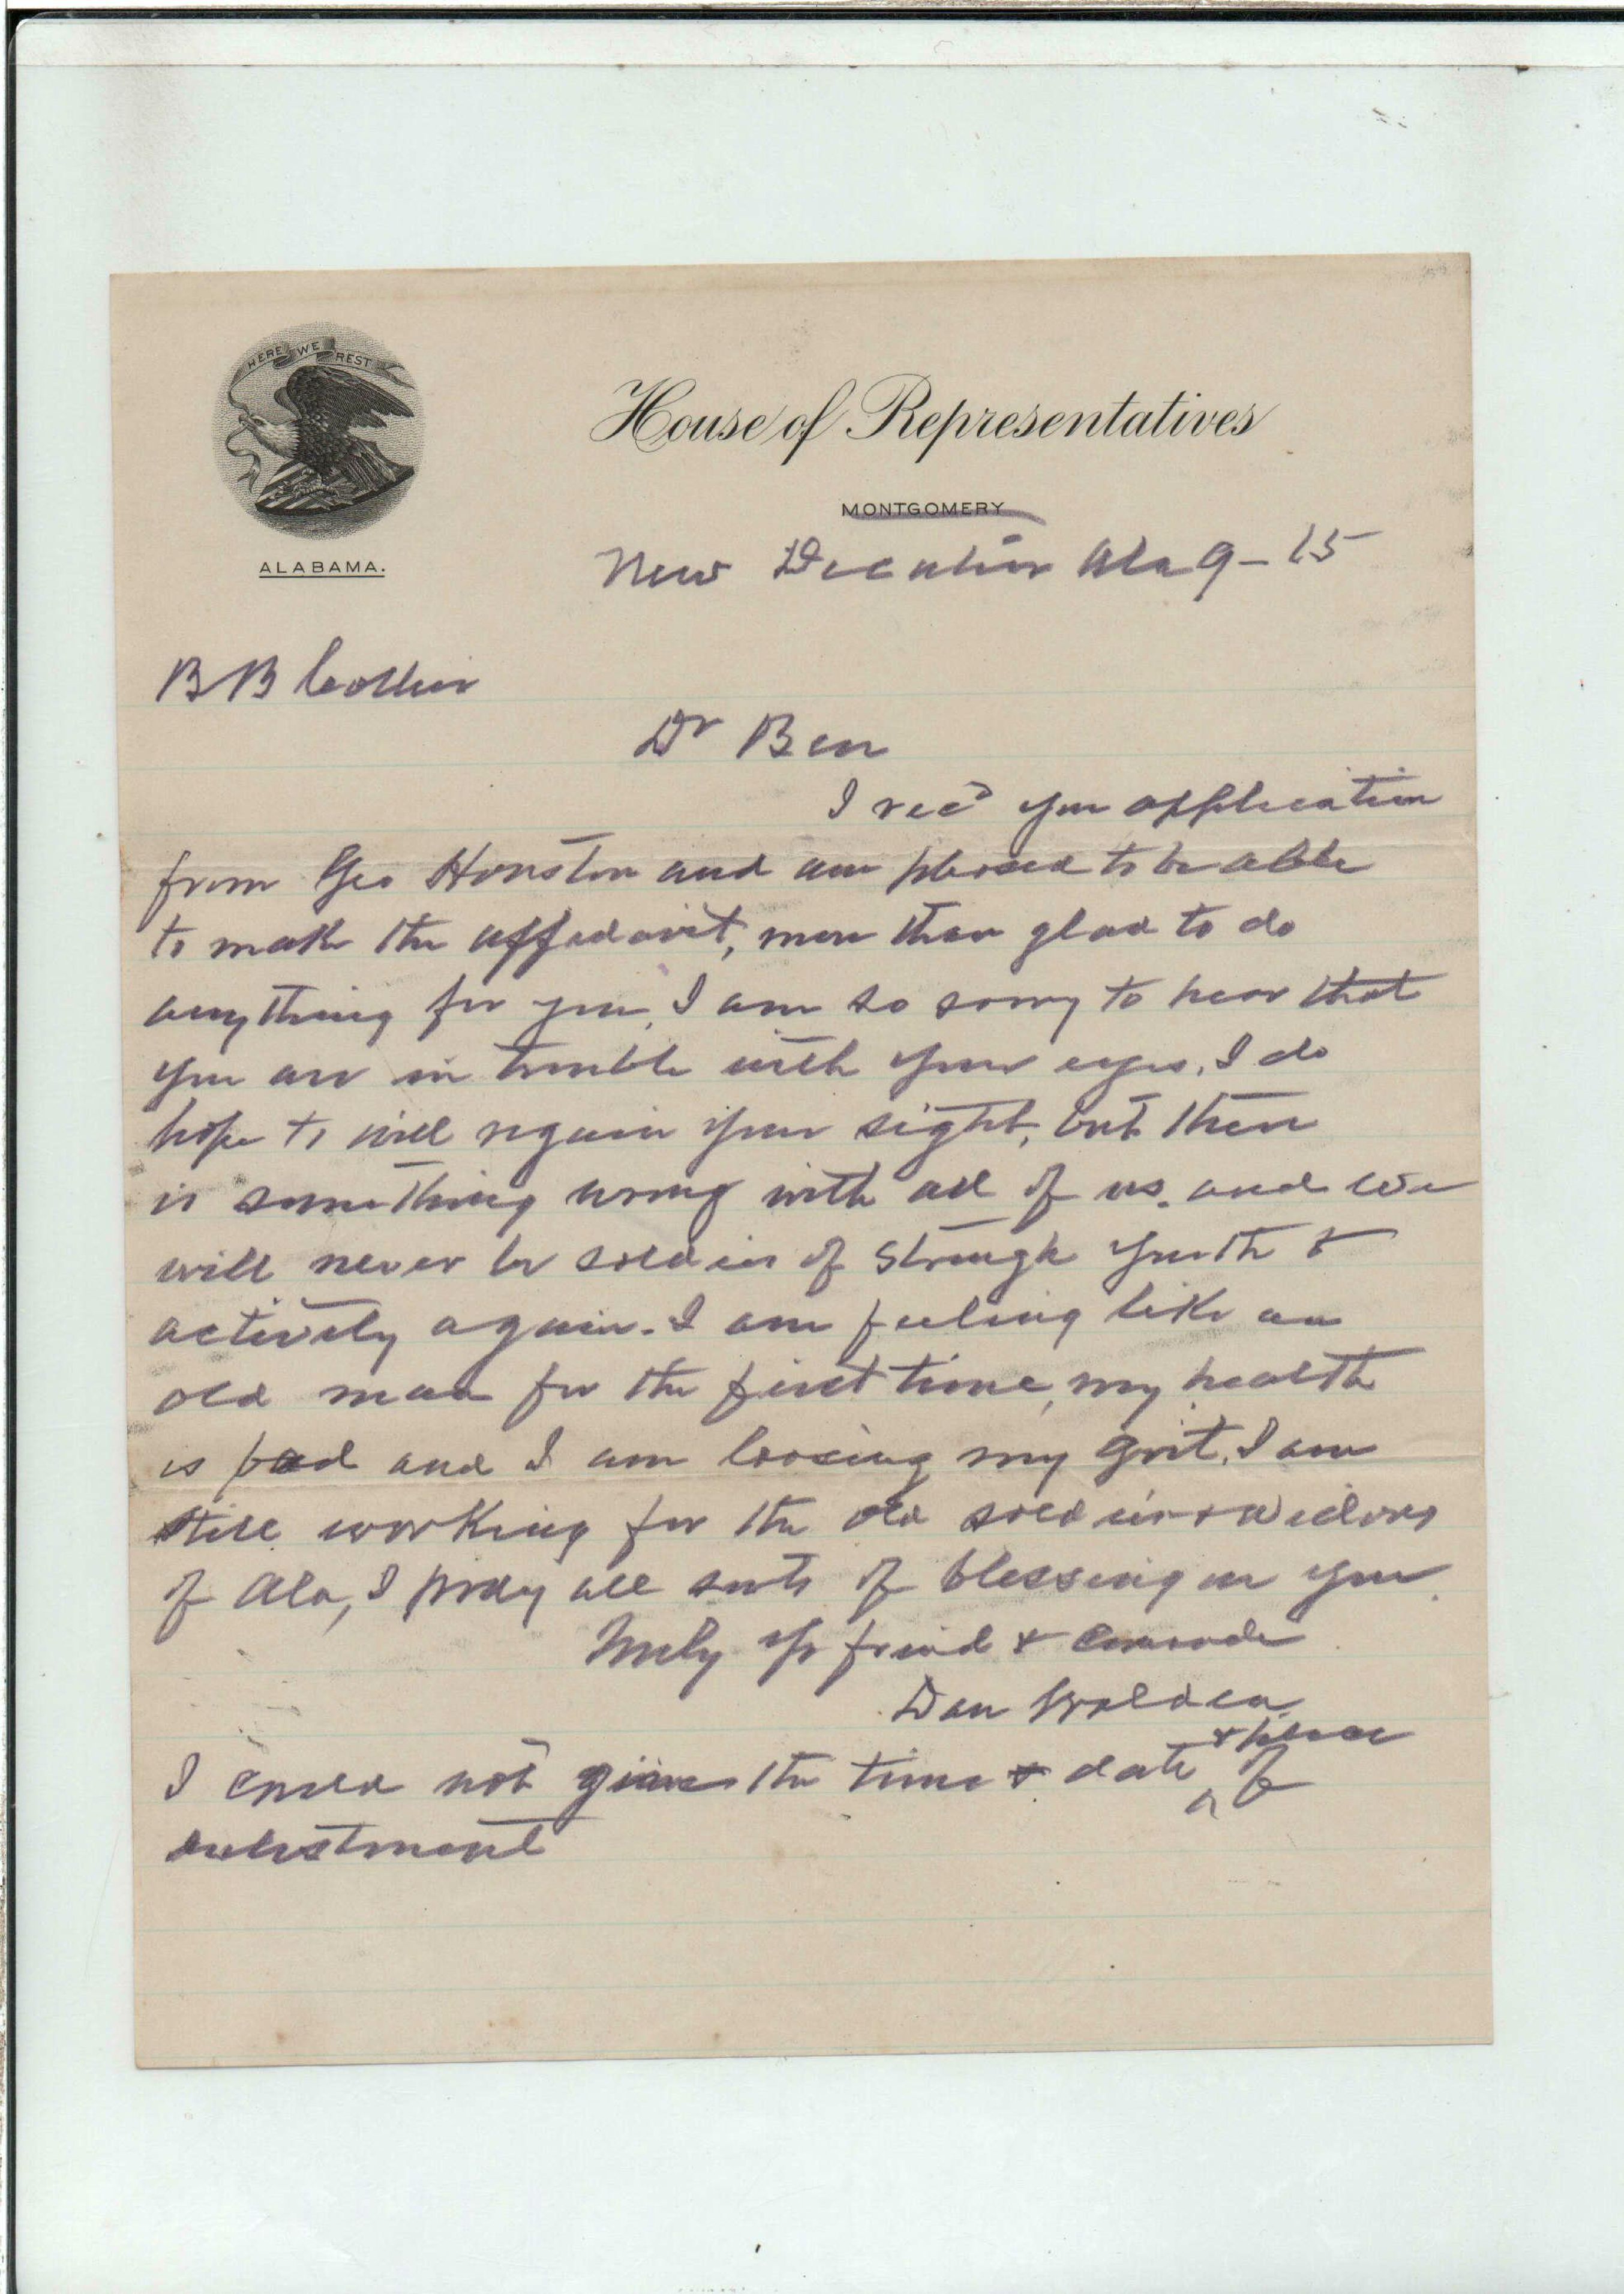 HERE WE REST
ALABAMA.
House of Representatives
MONTGOMERY
New Decatur Ala 9-15
B B Collier
Dr Ben
I rec'd your application
from Geo Houston and am pleased to be able
to make the affadavit, more than glad to do
anything for you, I am so sorry to hear that
you are in trouble with your eyes, I do
hope to will regain your sight, but there
is something wrong with all of us. and we
will never be soldiers of strength youth &
activity again. I am feeling like an
old man for the first time, my health
is bad and I am loosing my grit. I am
still working for the old soldiers & widows
of Ala, I pray all sorts of blessing on you.
Truly yr friend & Comrade
Dan Walden
I could not give the time & date & place of
enlistment